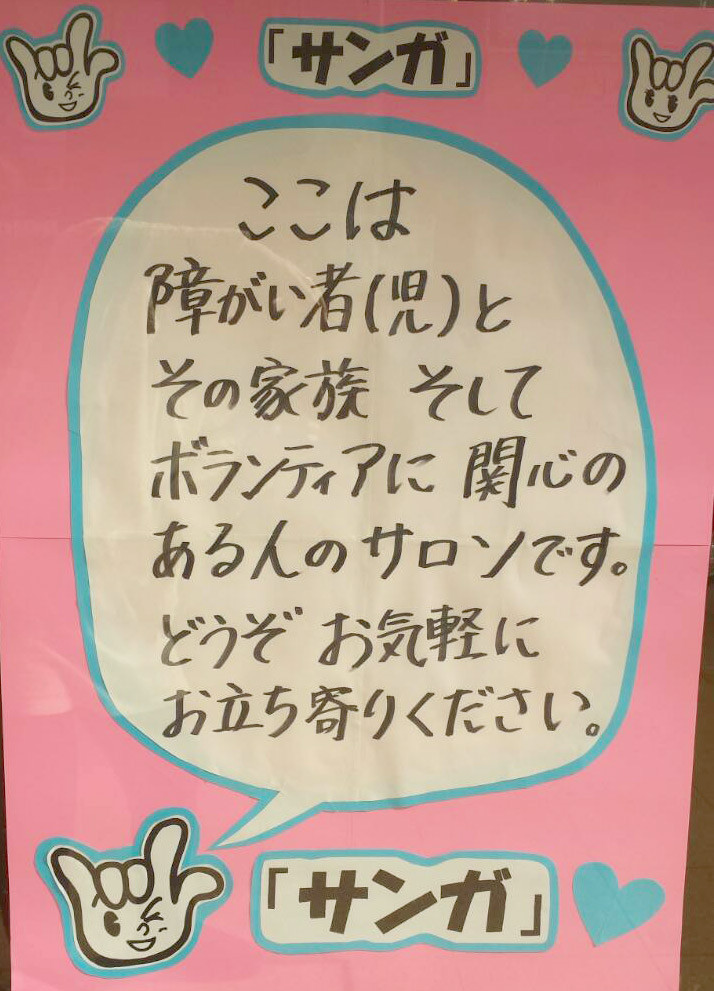 「サンガ」
ここは
障がい者(児)と
その家族 そして
ボランティアに 関心の
ある人のサロンです。
どうぞ お気軽に
お立ち寄りください。
「サンガ」